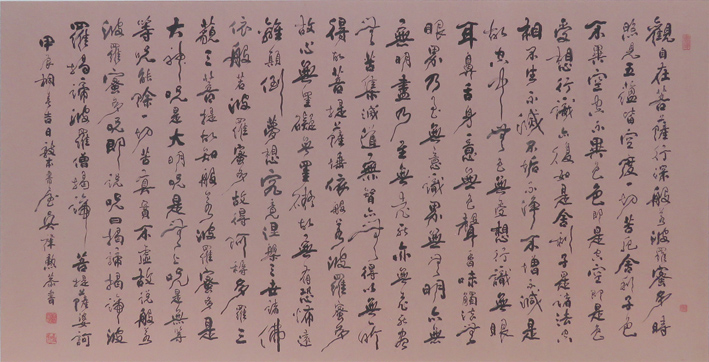 觀自在菩薩行深般若波羅蜜多時
照見五蘊皆空度一切苦厄舍利子色
不異空空不異色色即是空空即是色
受想行識亦復如是舍利子是諸法空
相不生不滅不垢不淨不增不減是
故空中無色無受想行識無眼
耳鼻舌身意無色聲香味觸法無
眼界乃至無意識界無無明亦無
無明盡乃至無老死亦無老死盡
無苦集滅道無智亦無得以無所
得故菩提薩埵依般若波羅蜜多
故心無罣礙無罣礙故無有恐怖遠
離顛倒夢想究竟涅槃三世諸佛
依般若波羅蜜多故得阿耨多羅三
藐三菩提故知般若波羅蜜多是
大神咒是大明咒是無上咒是無等
等咒能除一切苦真實不虛故說般若
波羅蜜多咒即說咒曰揭諦揭諦波
羅揭諦波羅僧揭諦菩提薩婆訶
甲辰桐月吉日